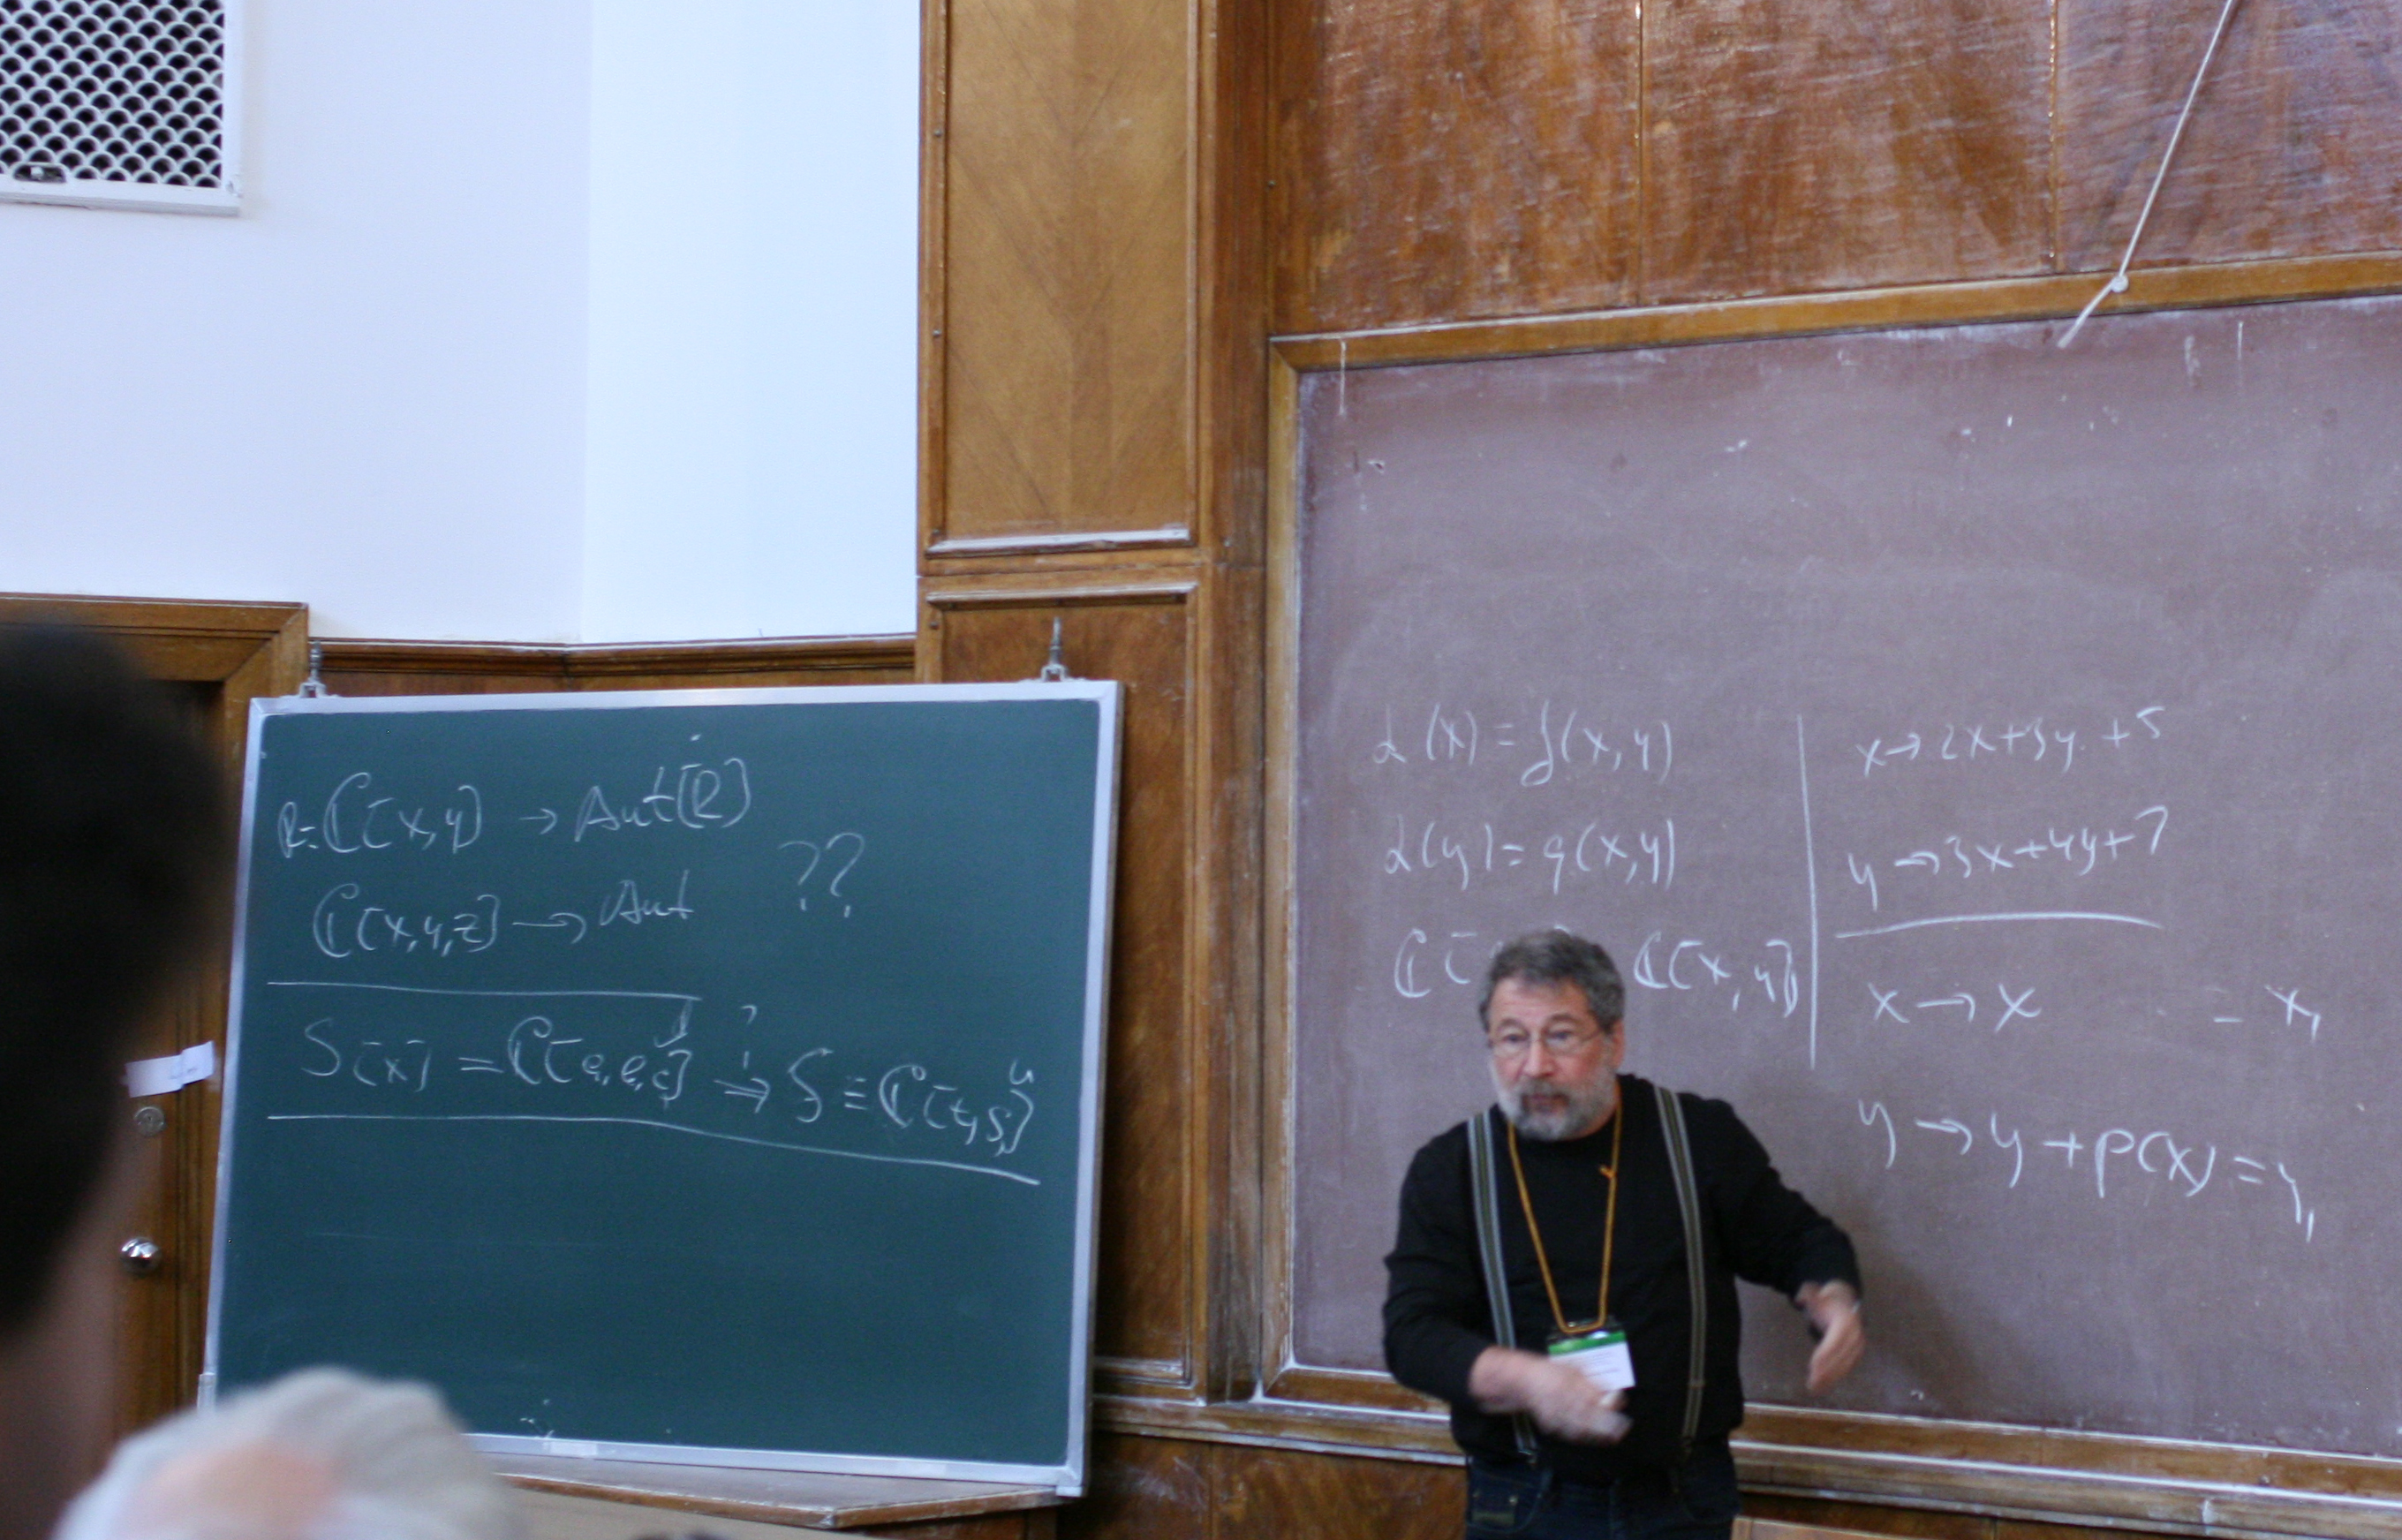 R=ℂ[x,y] → Aut(R)
ℂ[x,y,z] → Aut ??
S[x] = ℂ[a,b,c] ?⇒ S ≡ ℂ[t,s,u]
α(x) = f(x,y)
α(y) = g(x,y)
ℂ[ ℂ[x,y]
x → 2x+3y+5
y → 3x+4y+7
x → x = x₁
y → y+p(x) = y₁